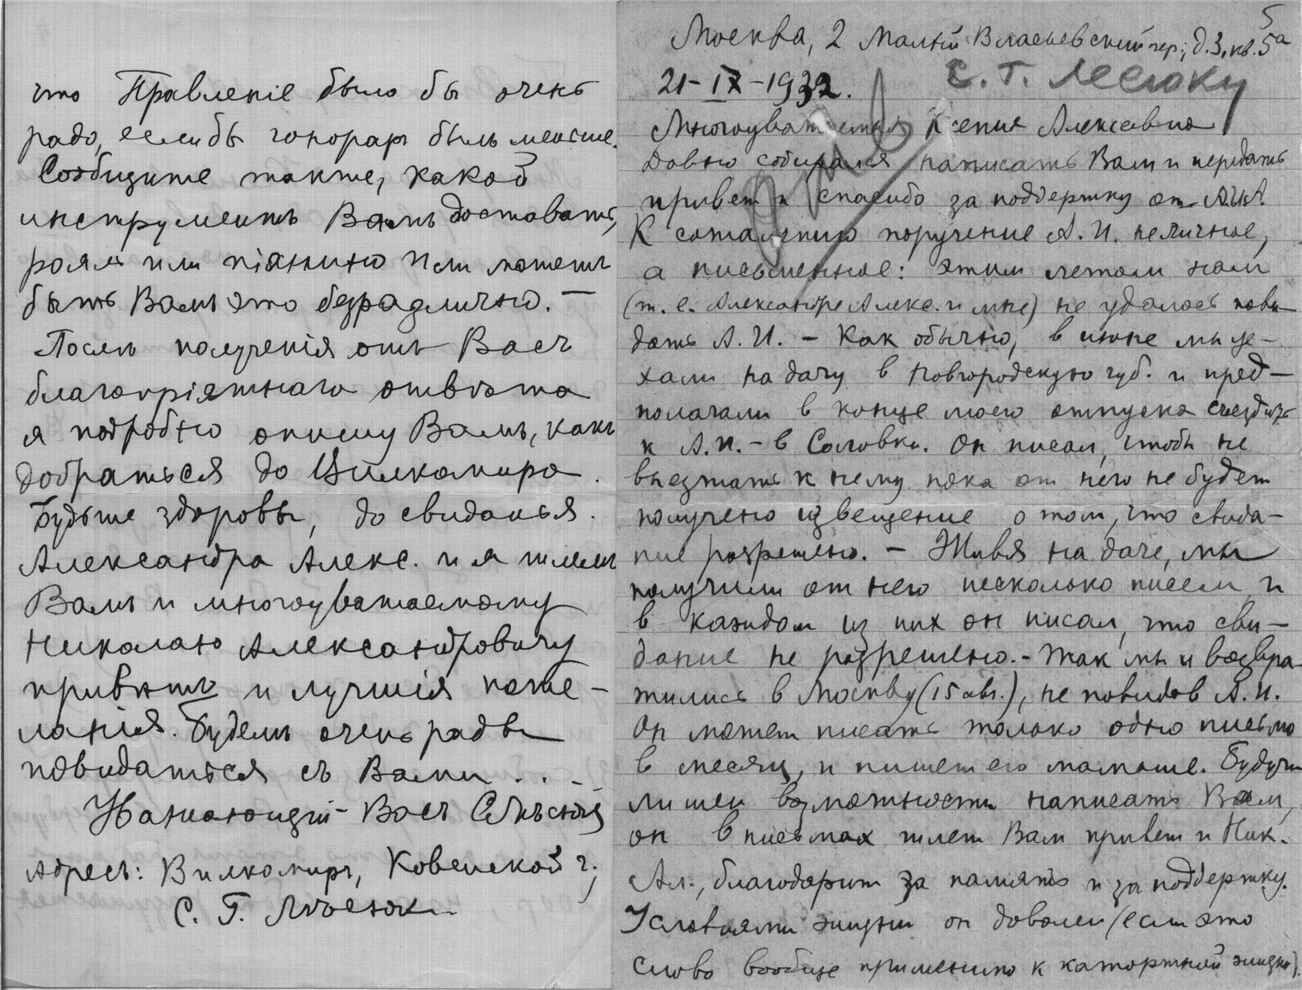 что Правленіе было бы очень
радо, еслибы гонораръ былъ меньше.
Сообщите также, какой
инструментъ Вамъ доставать,
рояль или піанино или можетъ
быть Вамъ это безразлично. —
Послѣ полученія отъ Васъ
благопріятнаго отвѣта
я подробно опишу Вамъ, какъ
добраться до Вилкомира.
Будьте здоровы, до свиданья.
Александра Алекс. и я шлемъ
Вамъ и многоуважаемому
Николаю Александровичу
привѣтъ и лучшія поже-
ланія. Будемъ очень рады
повидаться съ Вами . . –
Уважающій Васъ
Адресъ: Вилкомиръ, Ковенской г.,
С. Г. Лѣсюкъ.
5
Москва, 2 Малый Власьевский пер., д. 3, кв. 5а
21–IX–1932.
С. Г. Лесюку
Многоуважаемая Ксения Алексеевна
Давно собирался написать Вам и передать
привет и спасибо за поддержку от А.И.
К сожалению поручение А. И. не личное,
а письменное: этим летом нам
(т. е. Александре Алекс. и мне) не удалось пови-
дать А. И. – Как обычно, в июне мы уе-
хали на дачу в Новгородскую губ. и пред-
полагали в конце моего отпуска съездить
к А. И. – в Соловки. Он писал, чтобы не
выезжать к нему пока от него не будет
получено извещение о том, что свида-
ние разрешено. – Живя на даче, мы
получили от него несколько писем и
в каждом из них он писал, что сви-
дание не разрешено. – Так мы и возвра-
тились в Москву (15 авг.), не повидав А. И.
Он может писать только одно письмо
в месяц, и пишет его мамаше. Будучи
лишен возможности написать Вам,
он в письмах шлет Вам привет и Ник.
Ал., благодарит за память и за поддержку.
Условиями жизни он доволен (если это
слово вообще применимо к каторжной жизни).